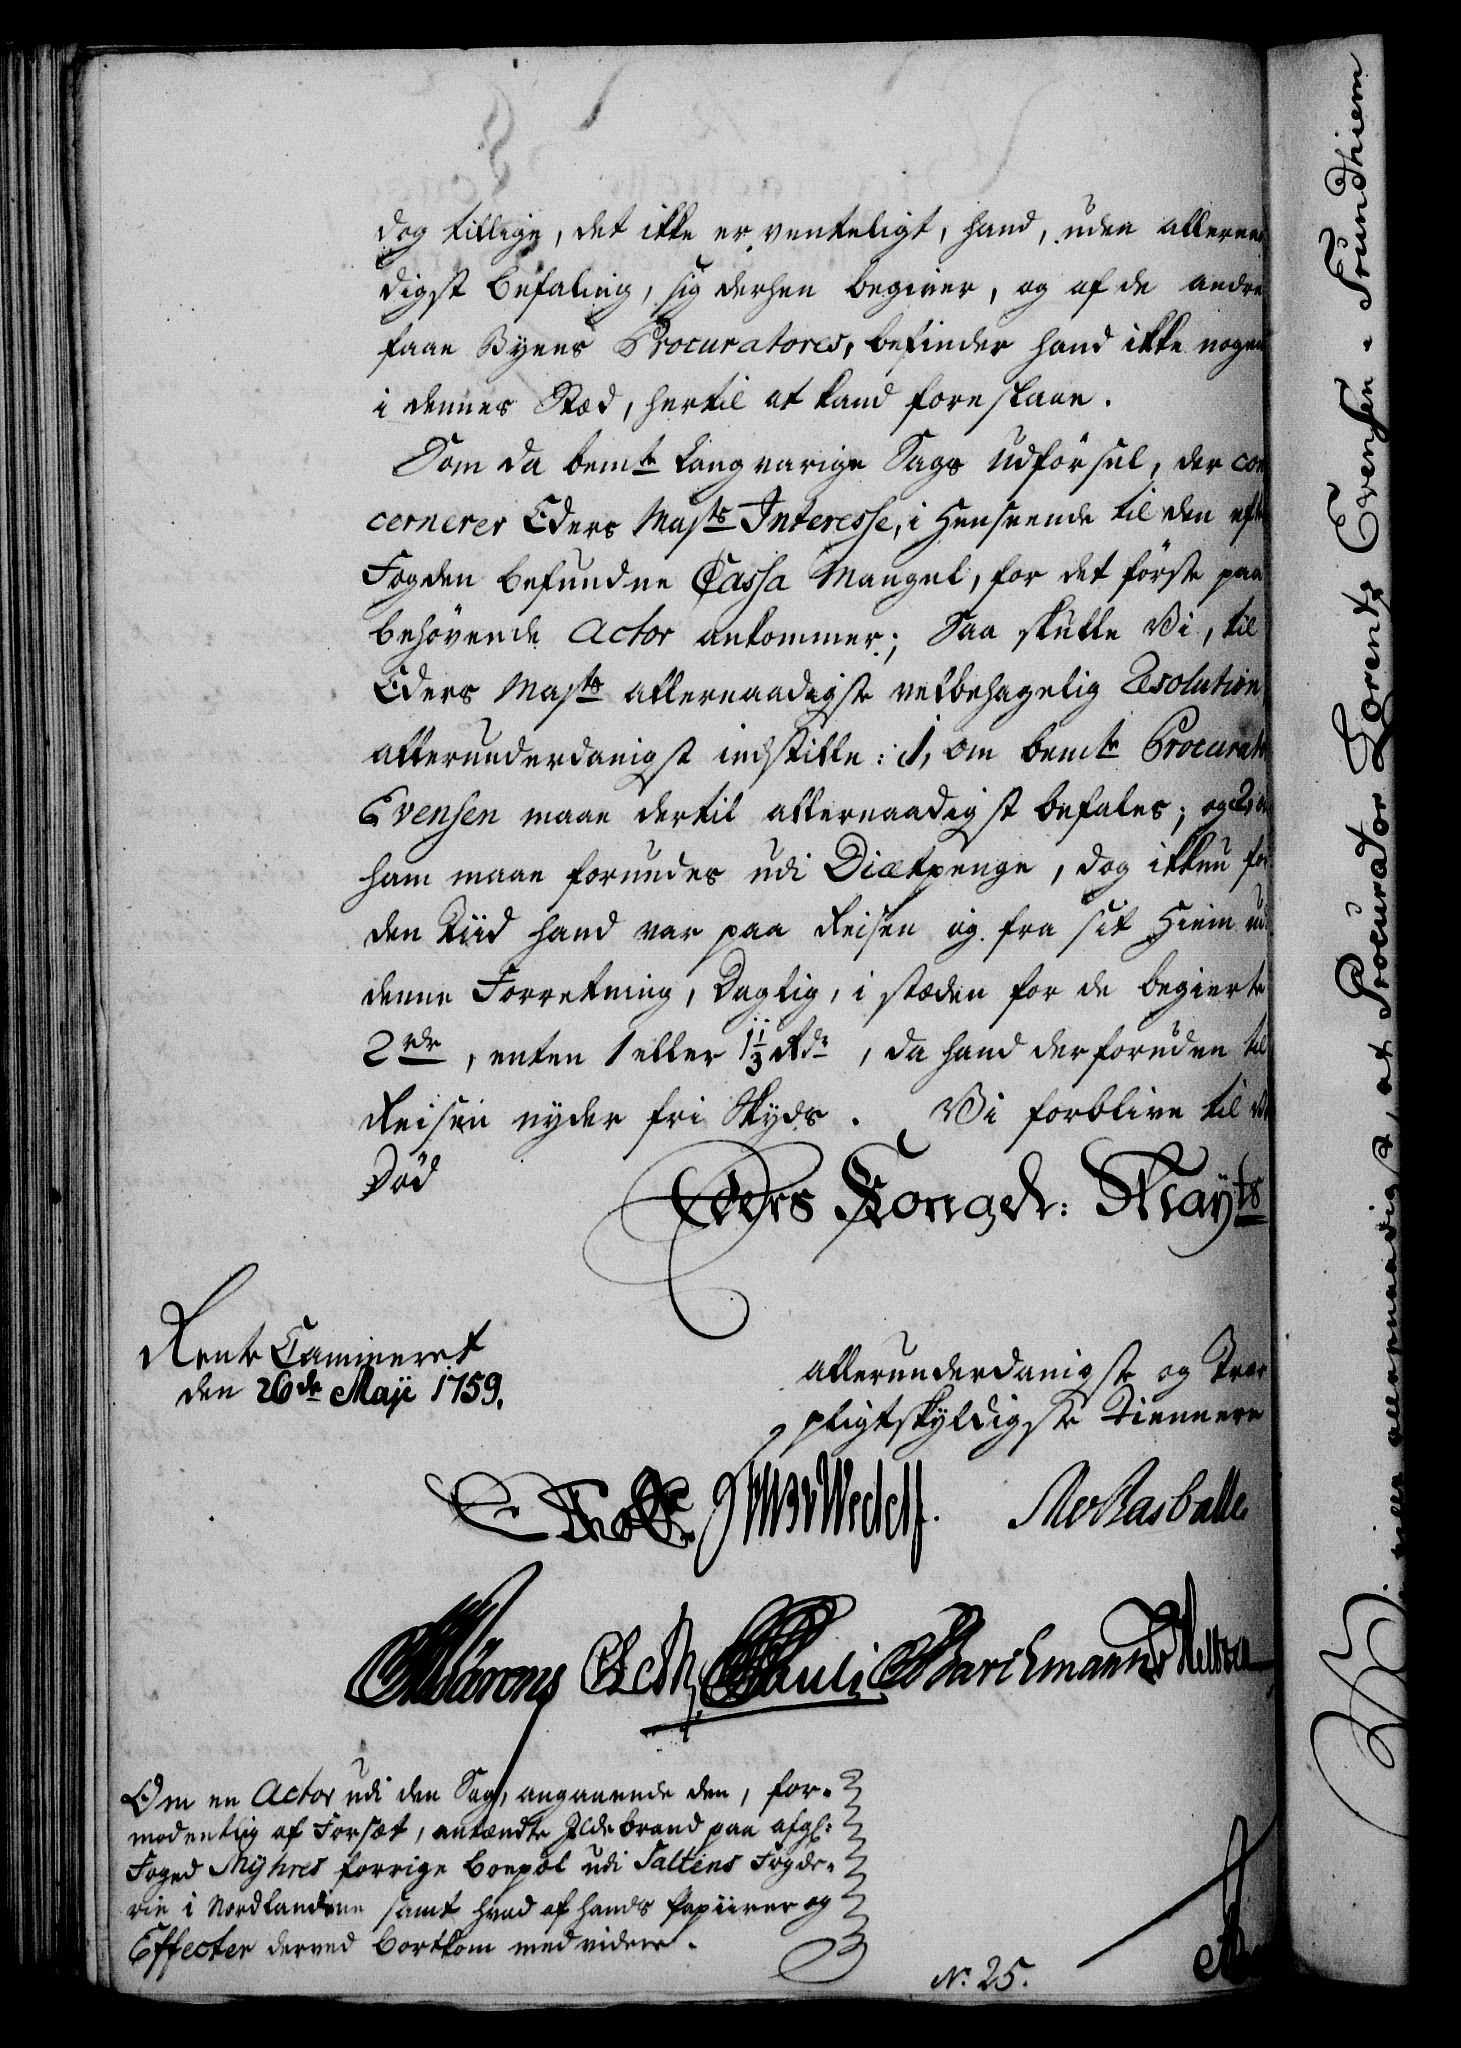 dog tillige, det ikke er venteligt, hand, uden allernaa
digst Befaling, sig derhen begiver, og af de andre
faae Byens Procuratores, befinder hand ikke nogen
i dennes Stæd, hertil at kand foreslaae.
Som da bemte langvarige Sags Udförsel, der con
cernerer Eders Mayts Interesse, i Henseende til den eft
Fogden befundne Cassa Mangel, for det förste paa
behövende Actor ankommer; Saa skulle Vi, til
Eders Mayts allernaadigste velbehagelig Resolution,
allerunderdanigst indstille: 1, om bemte Procurator
Evensen maae dertil allernaadigst befales; og 2,
ham maae forundes udi Diætpenge, dog ikkun for
den Tiid hand var paa Reisen og fra sit Hiem udi
denne Forretning, Daglig, i stæden for de begierte
2 rdr, enten 1 eller 1 1/3 Rdr, da hand derforuden til
Reisen nyder fri Skyds. Vi forblive til
Död
Eders Kongel: Mayts
Rente Cammeret
den 26de Maji 1759.
allerunderdanigste og Troe
pligtskyldigste Tiennere
Tholk Wedell
Om en Actor udi den Sag, angaaende den, for-
modentlig af Forsæt, antændte Ildebrand paa afgl:
Foged Myhres forrige Boepæl udi Saltens Fogde-
rie i Nordlandene samt hvad af hands Papiirer og
Effecter derved bortkom med videre.
No. 25.
allernaadigst, at Procurator Lorentz Evensen - Trundhiem